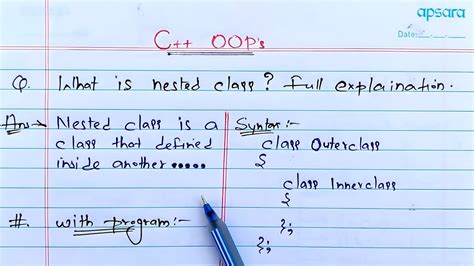 apsara
Date:
C++ OOP's
Q. What is nested class? full explaination.
Ans → Nested class is a
class that defined
inside another.....
Syntax:-
class Outerclass
{
class Innerclass
{
};
};
#. with program:-